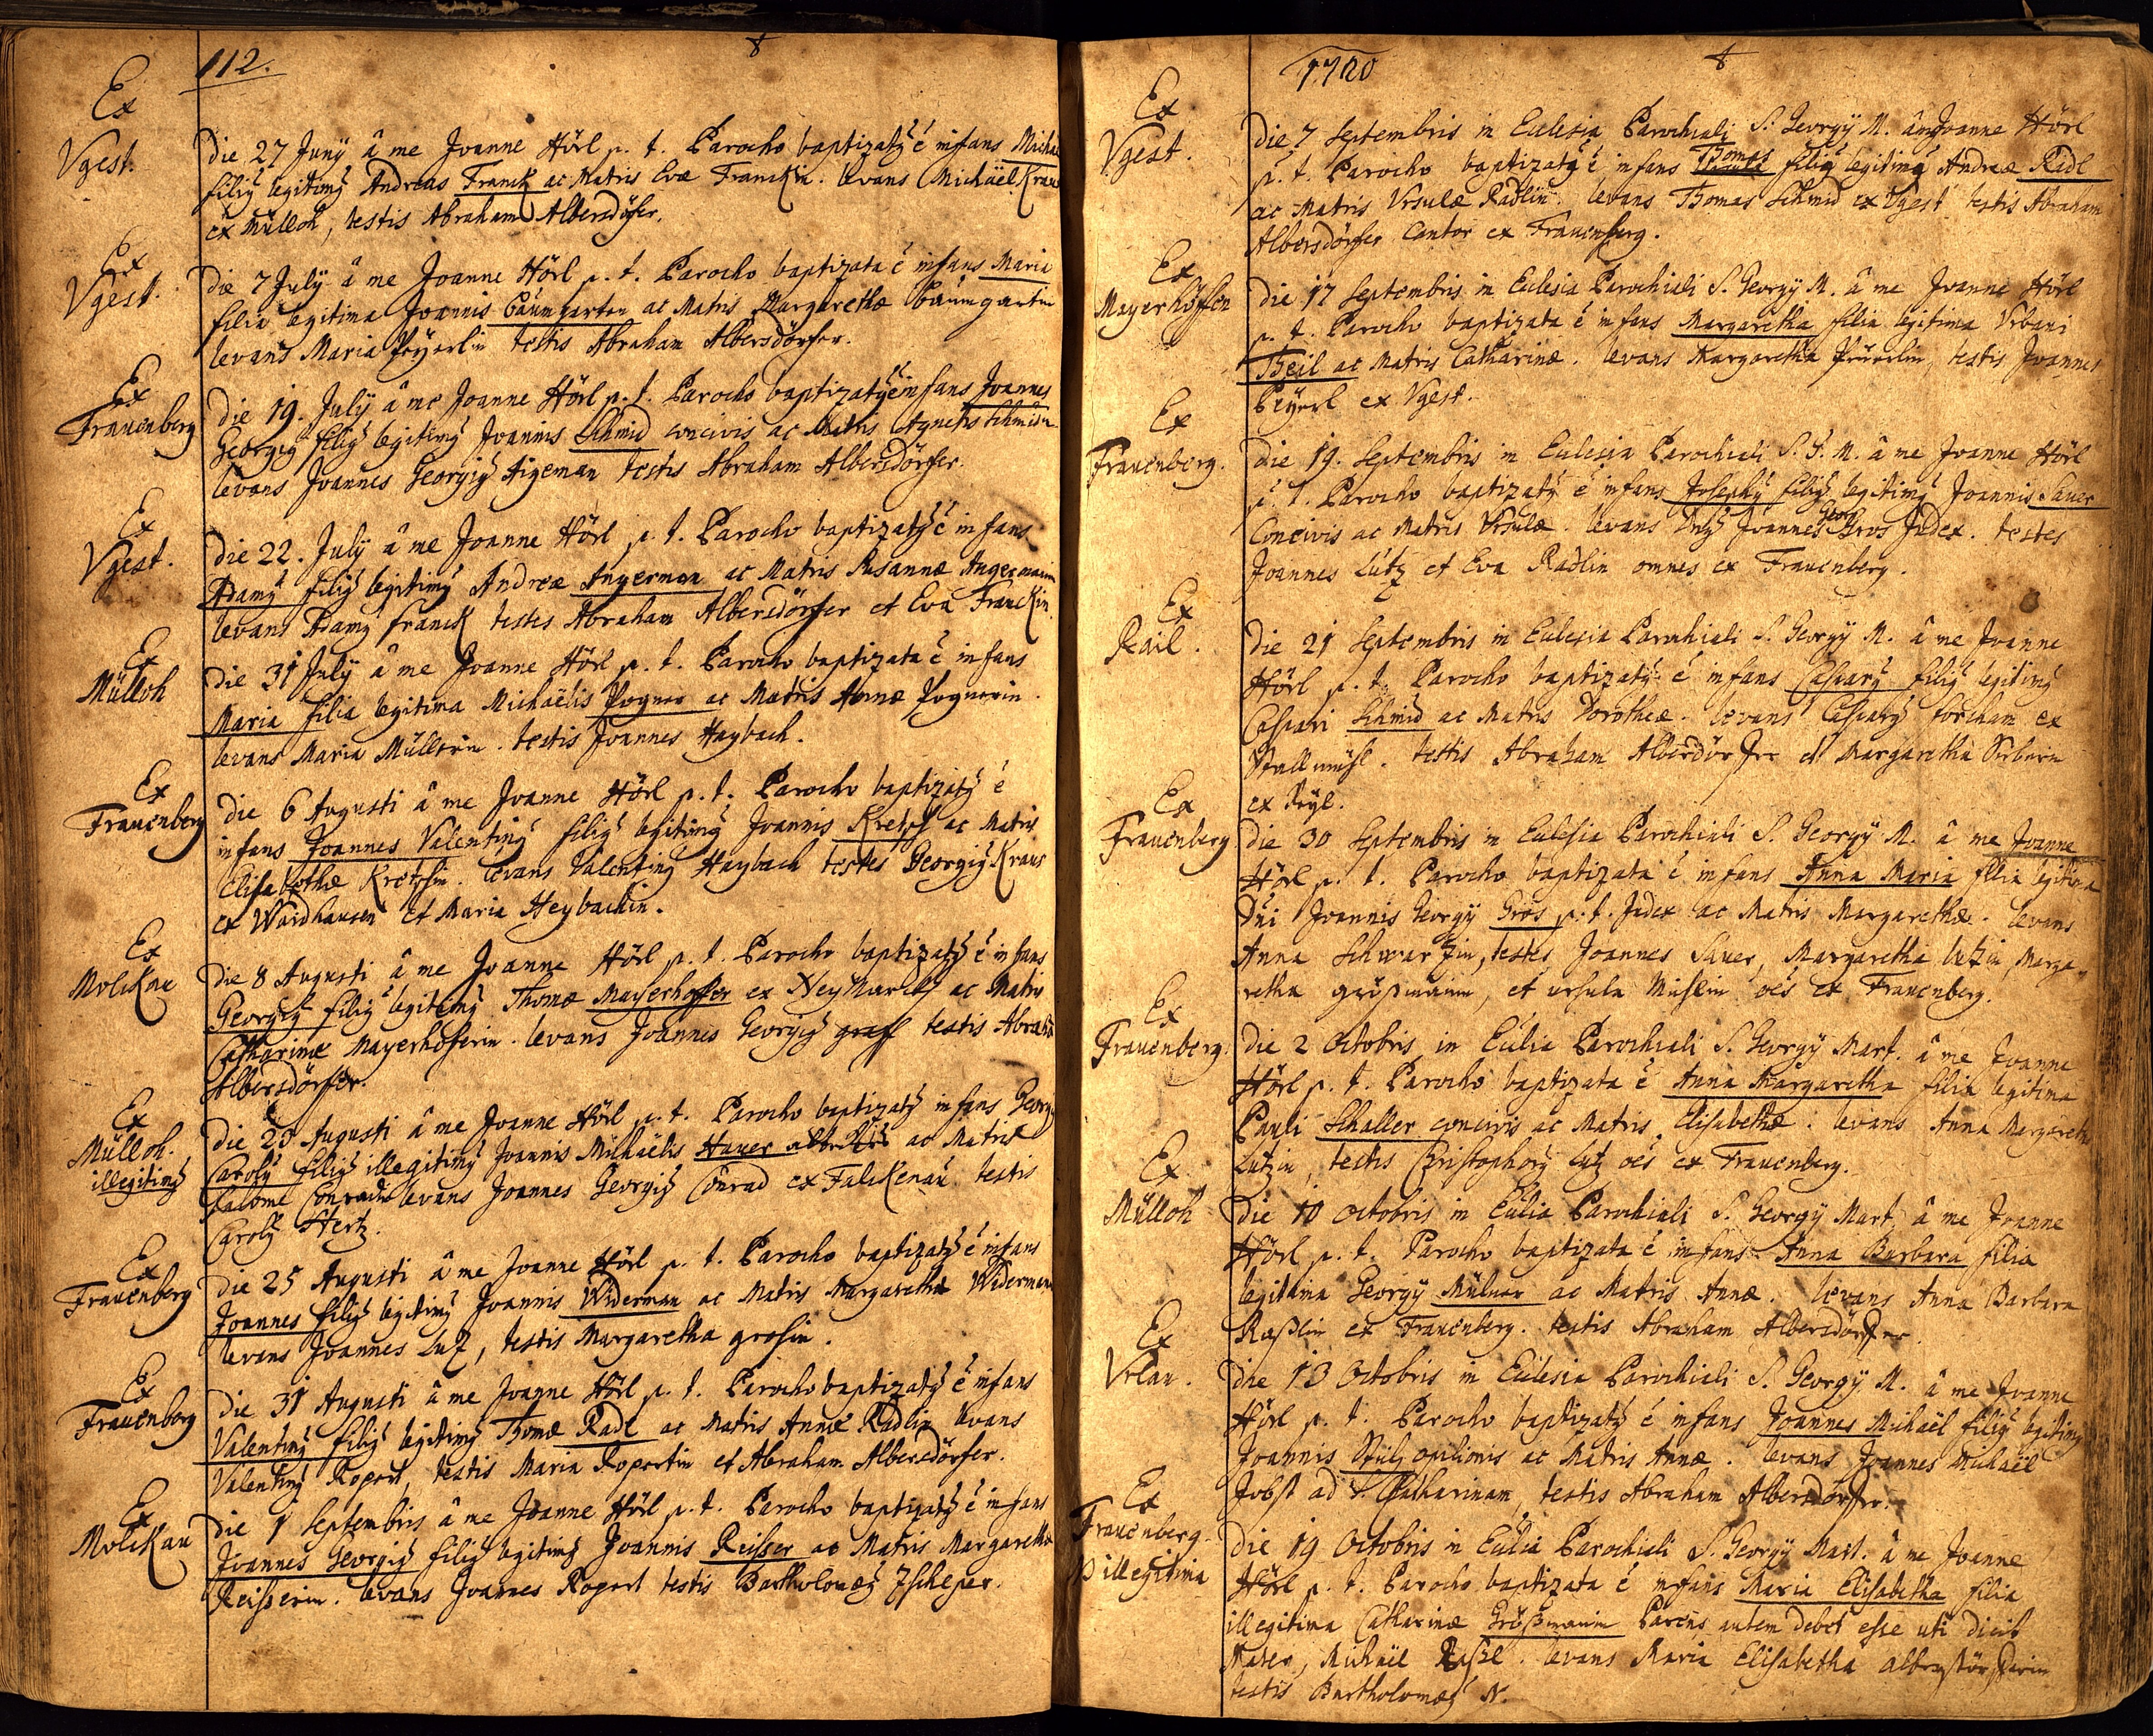 112.
Ex
Vgest.
die 27 Junÿ â me Joanne Hörl p. t. Parocho baptizatÿ ê infans Michael
filiÿ legitimÿ Andreas Franck ac Matris Evæ Franckin. levans Michäel Kraus
ex Mülloh, testis Abraham Albersdöfer.
Ex
Vgest.
die 7 Julÿ â me Joanne Hörl p. t. Parocho baptizata ê infans Maria
filia legitima Joannis Baumgarten ac Matris Margarethæ baumgartin
levans Maria Peyerlin testis Abraham Albersdörfer.
Ex
Frauenberg
die 19. Julÿ â me Joanne Hörl p. t. Parocho baptizatÿ ê infans Joannes
Georgiÿ filiÿ legitimÿ Joannis Schmid concivis ac Matris Agnetis Schmidin
levans Joannes Georgiÿ Aigeman testis Abraham Albersdörfer.
Ex
Vgest.
die 22. Julÿ â me Joanne Hörl p. t. Parocho baptizatÿ ê infans
Adamÿ filiÿ legitimÿ Andreæ Angerman ac Matris Susannæ Angermanin
levans Adamÿ franck testes Abraham Albersdörfer et Eva Franckin
Ex
Mülloh
die 31 Julÿ â me Joanne Hörl p. t. Parocho baptizata ê infans
Maria filia legitima Michaëlis Pogner ac Matris Annæ Pognerin.
levans Maria Müllerin. testis Joannes Haybach.
Ex
Frauenberg
die 6 Augusti â me Joanne Hörl p. t. Parocho baptizatÿ ê
infans Joannes Valentinÿ filiÿ legitimÿ Joannis Kretsch ac Matris
Elisabethæ Kretshin. levans Valentinÿ Haybach testes Georgiÿ Kraus
ex Waidhausen et Maria Heybachin.
Ex
Molckau
die 8 Augusti â me Joanne Hörl p. t. Parocho baptizatÿ ê infans
Georgiÿ filiÿ legitimÿ Thomæ Mayerhoffer ex Neÿmarck ac Matris
Catharinæ Mayerhöferin. levans Joannes Georgiÿ graff testis Abraham
Albersdörfer.
Ex
Mülloh.
illegitimÿ
die 23 Augusti â me Joanne Hörl p. t. Parocho baptizatÿ infans Georgiÿ
Carolÿ filiÿ illegitimÿ Joannis Michaëlis Hauer ac Matris
Salome Conradin levans Joannes Georgiÿ Conrad ex Falckenau. testis
Carolÿ Hertz.
Ex
Frauenberg
die 25 Augusti â me Joanne Hörl p. t. Parocho baptizatÿ ê infans
Joannes filiÿ legitimÿ Joannis Widerman ac Matris Margaretha Widermanin
levans Joannes Luz, testis Margaretha grosin.
Ex
Frauenberg
die 31 Augusti â me Joanne Hörl p. t. Parocho baptizatÿ ê infans
Valentinÿ filiÿ legitimÿ Thomæ Radl ac Matris Annæ Radlin levans
Valentinÿ Ropert, testis Maria Ropertin et Abraham Albersdörfer.
Ex
Molckau
die 1 Septembris â me Joanne Hörl p. t. Parocho baptizatÿ ê infans
Joannes Georgiÿ filiÿ legitimÿ Joannis Reisser ac Matris Margarethæ
Reisserin. levans Joannes Ropert testis Bartholomæÿ Zscheper.
1720
Ex
Vgest.
die 7 Septembris in Eclesia Parochiali S. Georgÿ M. â me Joanne Hörl
p. t. Parocho baptizatÿ ê infans Thomas filiÿ legitimÿ Andreæ Radl
ac Matris Vrsulæ Radlin. levans Thomas Schmid ex Vgest testis Abraham
Albersdörfer Cantor ex Frauenberg.
Ex
Mayerhöffen
die 17 Septembris in Eclesia Parochiali S. Georgÿ M. â me Joanne Hörl
p. t. Parocho baptizata ê infans Margaretha filia legitima Vrbani
Theil ac Matris Catharinæ. levans Margaretha testis Joannes
Peyerl ex Vgest.
Ex
Frauenberg.
die 19. Septembris in Eclesia Parochiali S. G. M. â me Joanne Hörl
p. t. Parocho baptizatÿ ê infans Josephÿ filiÿ legitimÿ Joannis Sauer
Concivis ac Matris Vrsulæ. levans Dnÿ Joannes Georg Gros Judex. testes
Joannes Lutz et Eva Radlin omnes ex Frauenberg.
Ex
Rail.
die 21 Septembris in Eclesia Parochiali S. Georgÿ M. â me Joanne
Hörl p. t. Parocho baptizatÿ ê infans Casparÿ filiÿ legitimÿ
Caspari Schmid ac Matris Dorotheæ. levans Casparÿ forcham ex
testis Abraham Alberdörfer et Margaretha
ex Reyl.
Ex
Frauenberg
die 30 Septembris in Eclesia Parochiali S. Georgÿ M. â me Joanne
Hörl p. t. Parocho baptizata ê infans Anna Maria filia legitima
Dni Joannis Georgÿ Gros p. t. Judex ac Matris Margarethæ. levans
Anna Schwarzin, testes Joannes Sauer, Margaretha lutzin, Marga-
retha größmanin, et ursula oẽs ex Frauenberg.
Ex
Frauenberg.
die 2 Octobris in Eclia Parochiali S. Georgÿ Mart. â me Joanne
Hörl p. t. Parocho baptizata ê Anna Margaretha filia legitima
Pauli Schaller concivis ac Matris Elisabethæ. levans Anna Margaretha
Lutzin, testis Christophorÿ lutz oẽs ex Frauenberg.
Ex
Mülloh
die 10 Octobris in Eclia Parochiali S. Georgÿ Mart. â me Joanne
Hörl p. t. Parocho baptizata ê infans Anna Barbara filia
legitima Georgÿ Mülner ac Matris Annæ. levans Anna Barbara
Raßlin ex Frauenberg. testis Abraham Albersdörfer.
Ex
Vrlau.
die 13 Octobris in Eclesia Parochiali S. Georgÿ M. â me Joanne
Hörl p. t. Parocho baptizatÿ ê infans Joannes Michaël filiÿ legitimÿ
Joannis opilionis ac Matris Annæ. levans Joannes Michaël
Jobst ad S. Catharinam, testis Abraham Albersdörfer.
Ex
Frauenberg.
illegitima
die 19 Octobris in Eclia Parochiali S. Georgÿ Mart. â me Joanne
Hörl p. t. Parocho baptizata ê infans Maria Elisabetha filia
illegitima Catharinæ Größmanin Parens autem debet esse uti dicit
Mater, Michäel Raßl. levans Maria Elisabetha
testis Bartholomæÿ N.